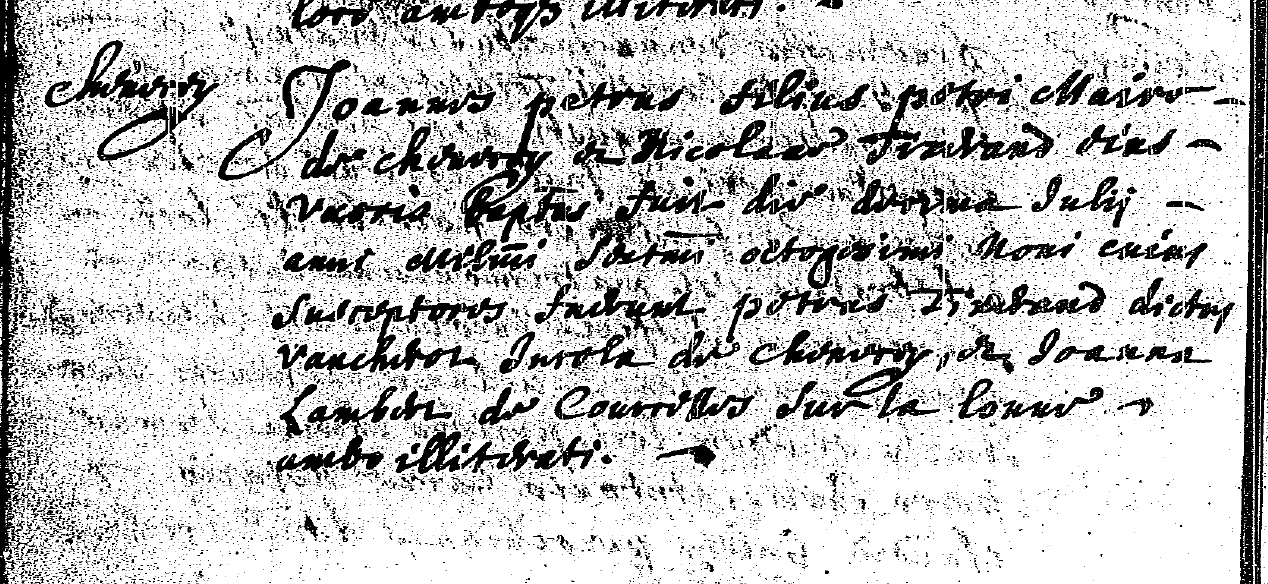 loro ambobus illiterati.
Chevroy
Joannes petrus filius petri Maire
de chevroy et Nicolaae Treband eius
uxoris baptus fuit die decima Julij
anni millmi sextmi octogesimi noni cuius
susceptores fuerunt petrus Treband dictus
vanchebot Incola de chevroy, et Joanna
Lambert de Courcelles sur la louve
ambo illiterati.